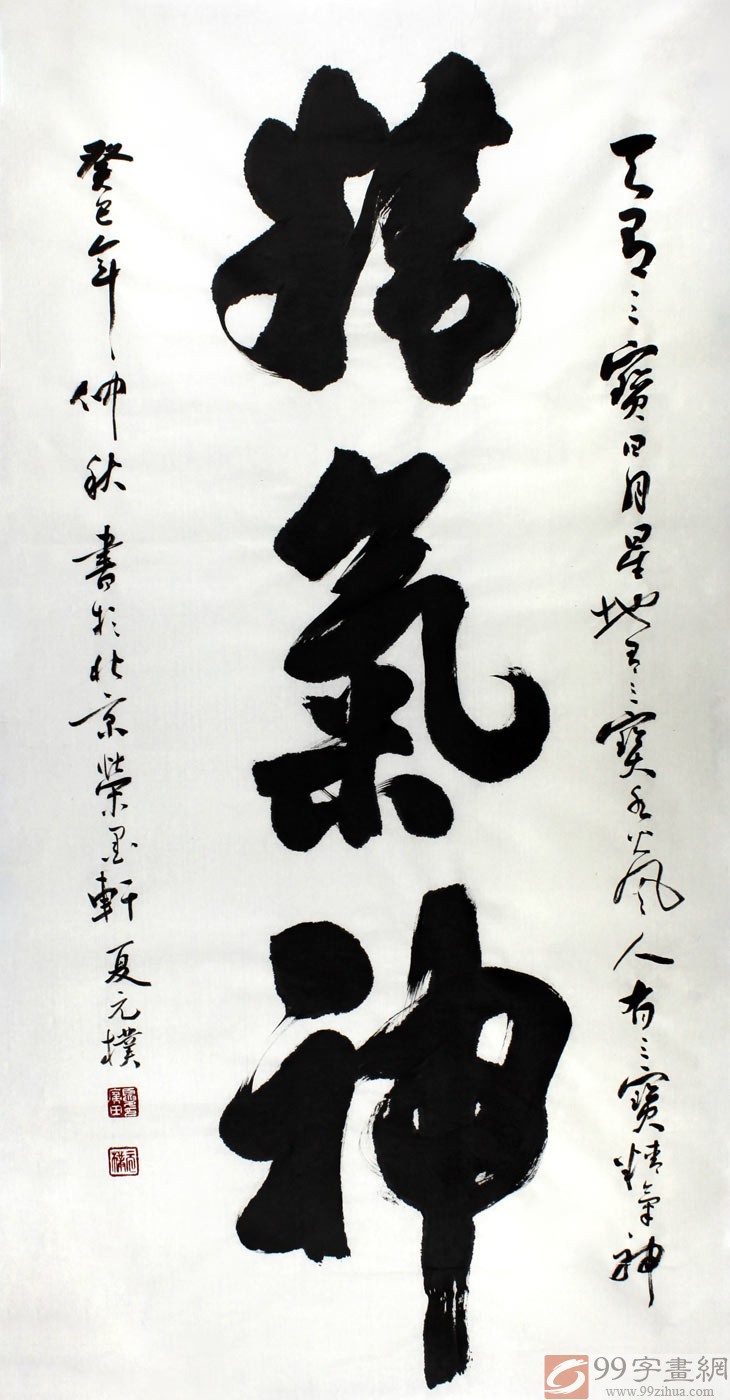 天有三寶日月星地有三寶水火風人有三寶精氣神
精氣神
癸巳年仲秋書於北京榮墨軒夏元樸
99字畫網
www.99zihua.com